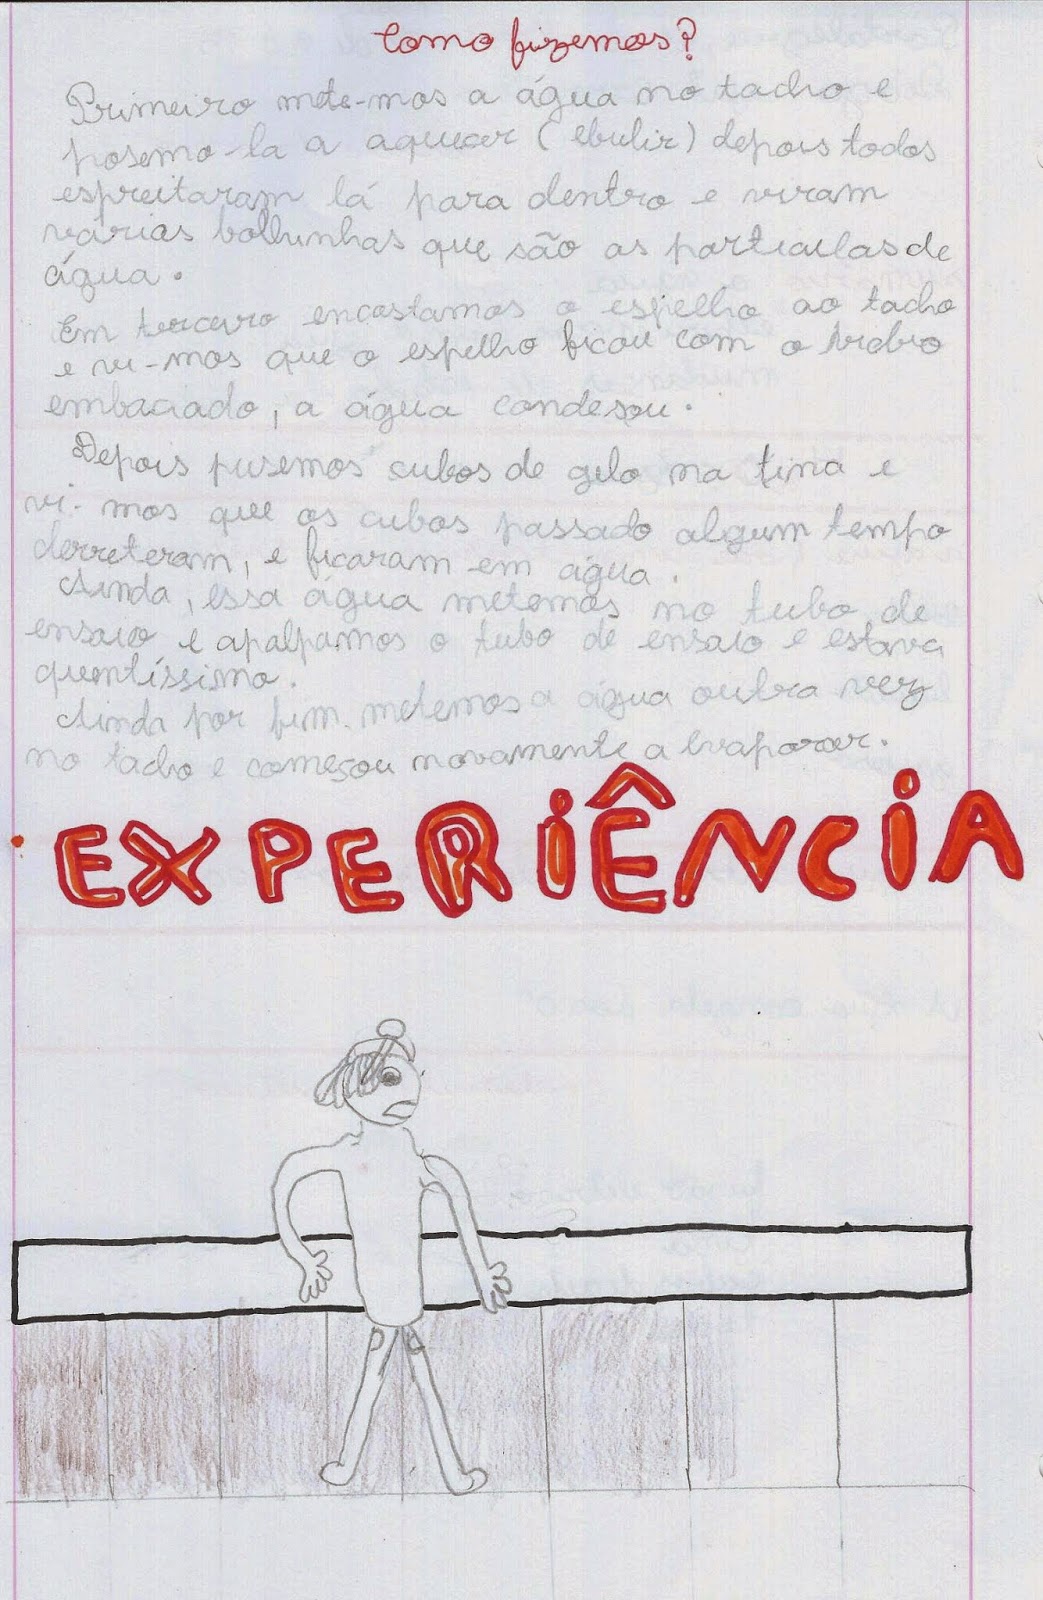 Como fizemos?
Primeiro mete-mos a água no tacho e
posemo-la a aquecer (ebulir) depois todos
espreitaram lá para dentro e viram
várias bolhinhas que são as particulas de
água.
Em terceiro encostamos o espelho ao tacho
e vi-mos que o espelho ficou com o vidro
embaciado, a água condesou.
Depois pusemos cubos de gelo na tina e
vi-mos que os cubos passado algum tempo
derreteram, e ficaram em água.
Ainda, essa água metemos no tubo de
ensaio e apalpamos o tubo de ensaio e estava
quentíssimo.
Ainda por fim metemos a água outra vez
no tacho e começou novamente a evaporar.
EXPERIÊNCIA